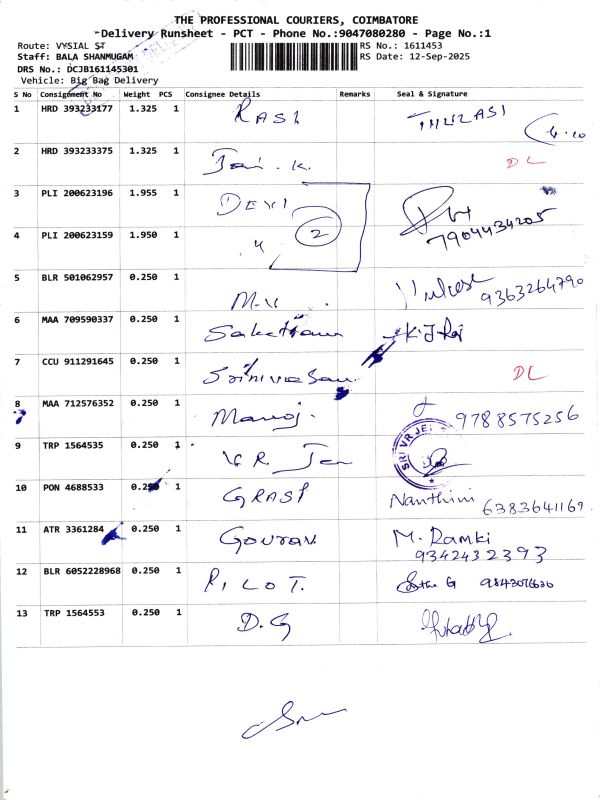 THE PROFESSIONAL COURIERS, COIMBATORE
Delivery Runsheet - PCT - Phone No.:9047080280 - Page No.:1
Route: VYSIAL ST RS No.: 1611453
Staff: BALA SHANMUGAM RS Date: 12-Sep-2025
DRS No.: DCJB161145301
Vehicle: Big Bag Delivery
S No Consignment No Weight PCS Consignee Details Remarks Seal & Signature
1 HRD 393233177 1.325 1 RASI THULZASI
2 HRD 393233375 1.325 1 Jai. K. DL
3 PLI 200623196 1.955 1 DEVI
2 7904434205
4 PLI 200623159 1.950 1 "
5 BLR 501062957 0.250 1 M.V. 9363264790
6 MAA 709590337 0.250 1 K.J.Raj
7 CCU 911291645 0.250 1 Srinivasan DL
8 MAA 712576352 0.250 1 Manoj. 9788575256
9 TRP 1564535 0.250 1 V R Jen SRI VR JE
10 PON 4688533 0.250 1 GRASP Nanthini 6383641169
11 ATR 3361284 0.250 1 Gourav M. Ramki
9342432393
12 BLR 6052228968 0.250 1 PILOT.
13 TRP 1564553 0.250 1 D.G